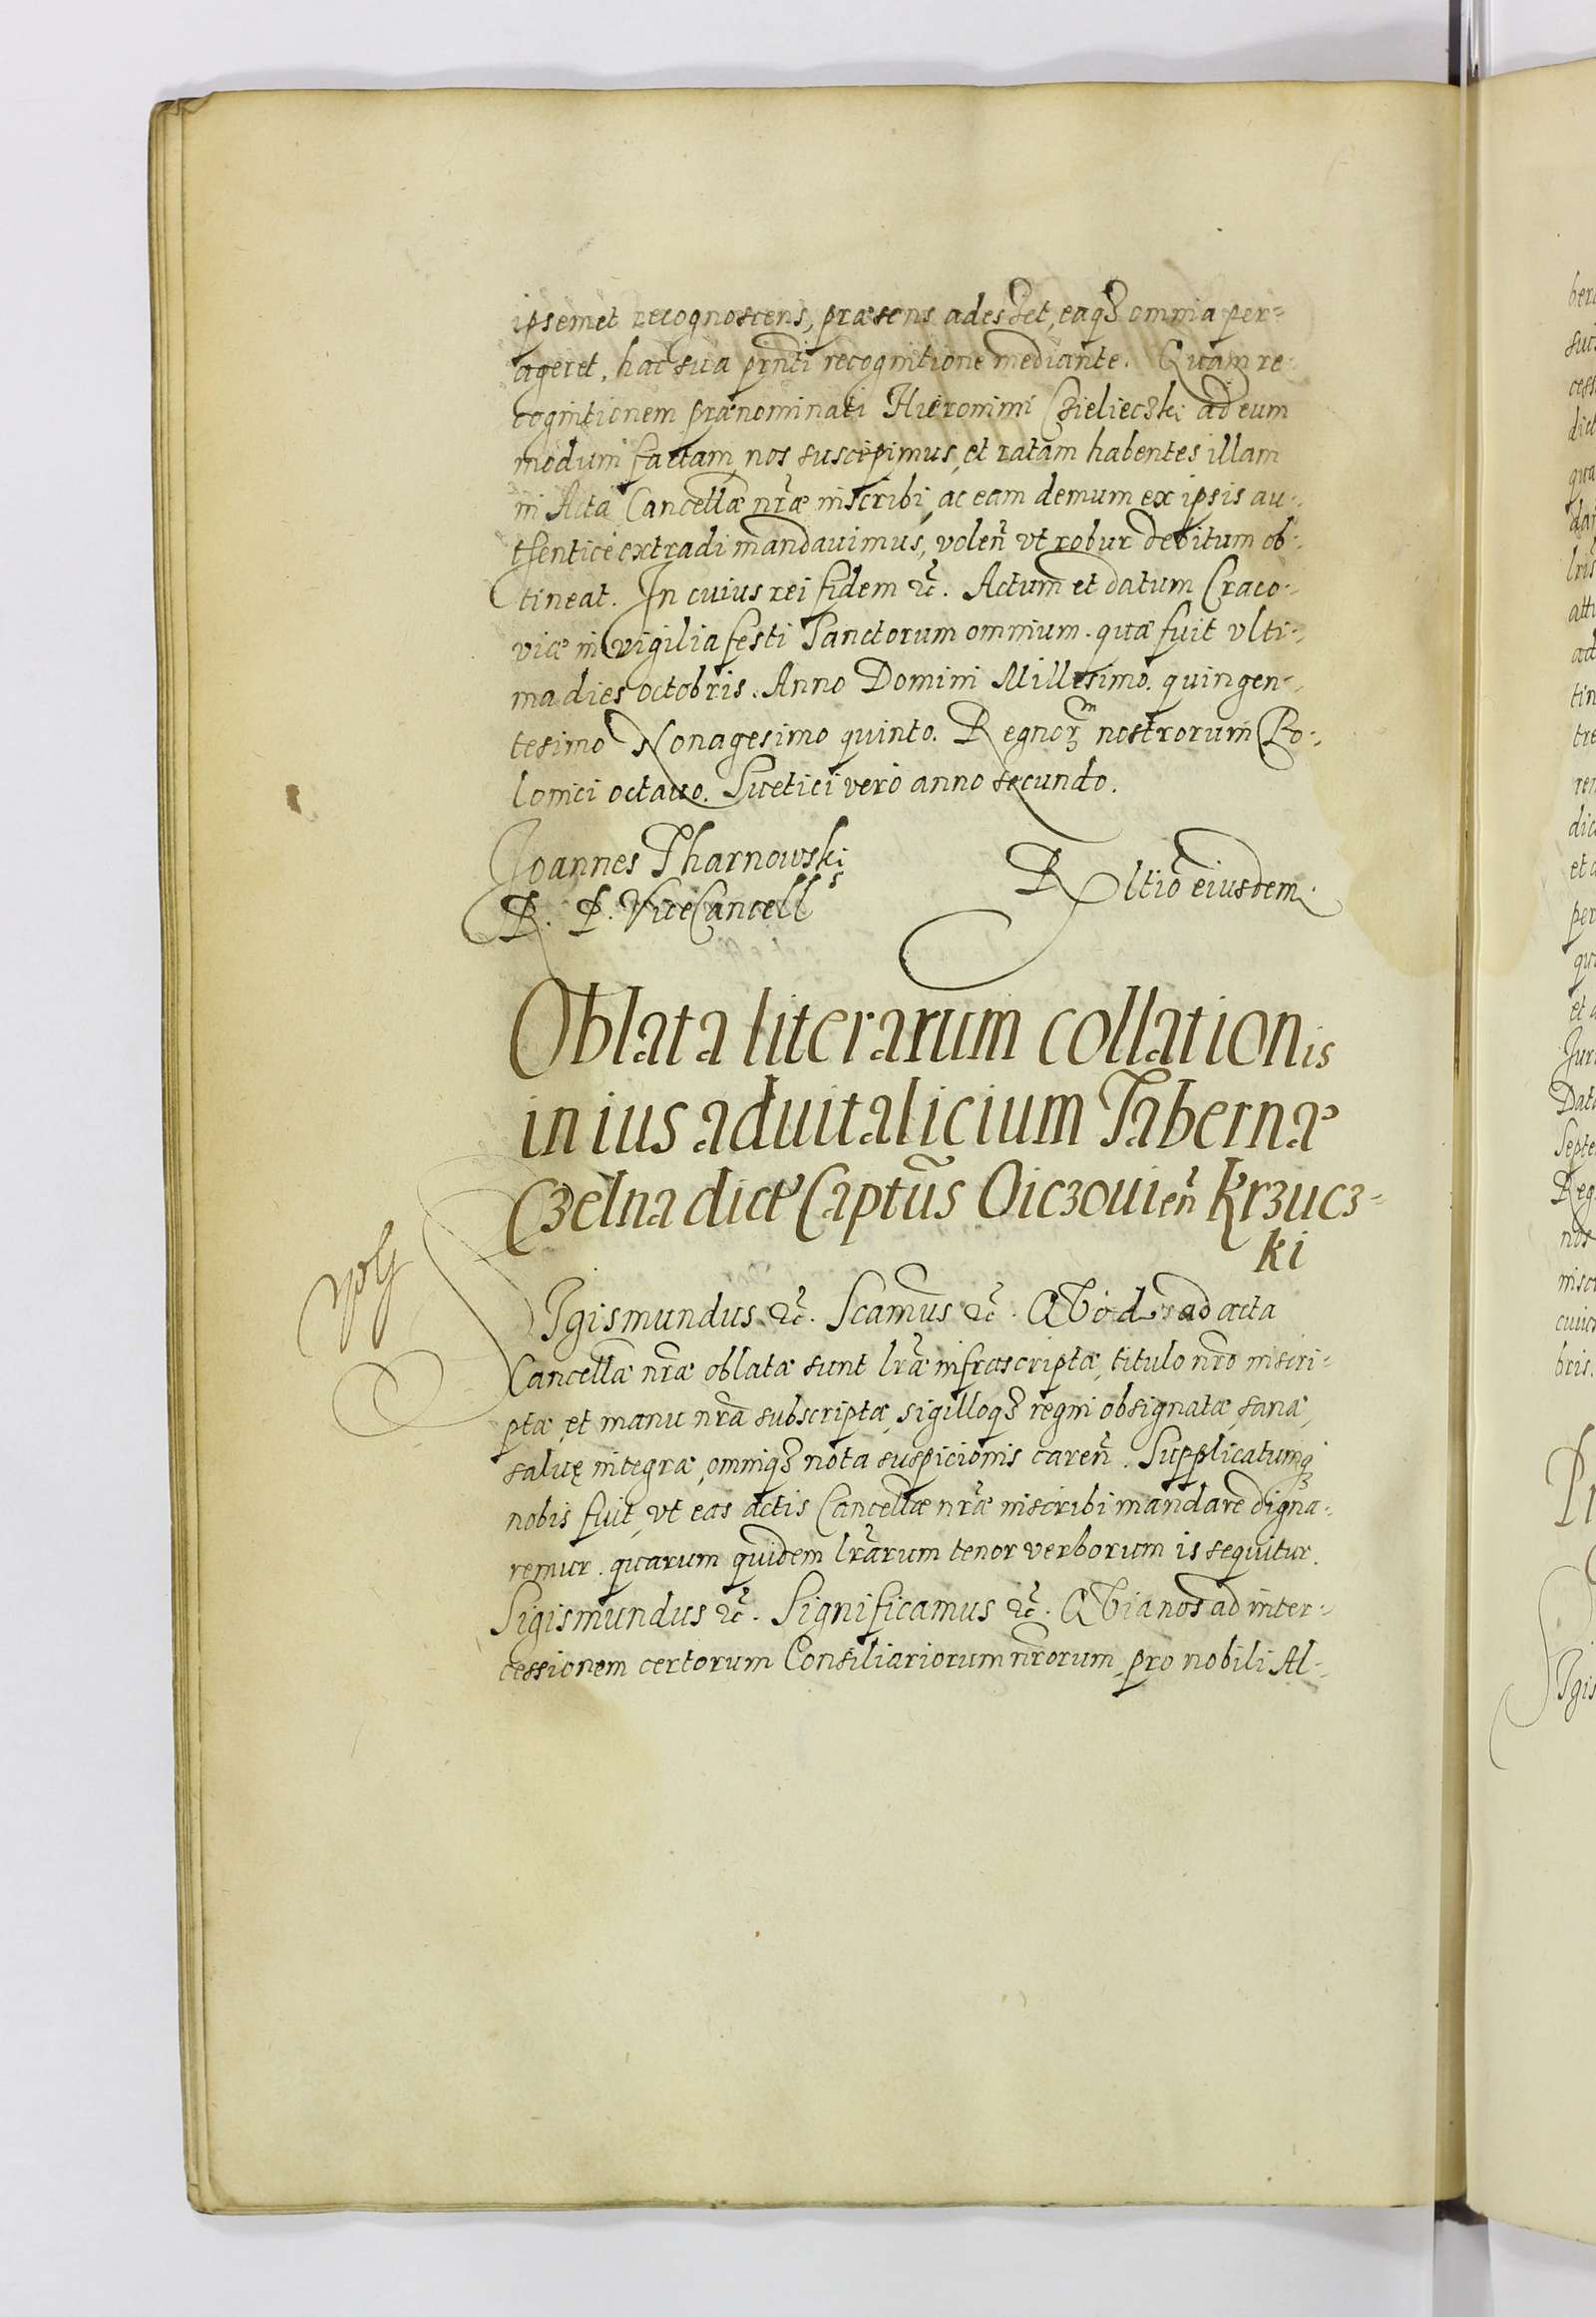 ipsemet recognoscens, præsens adesset, eaq3 omnia per=
ageret, hac sua pñti recognitione mediante. Quam re-
cognitionem prænominati Hieronimi Czielieczki ad eum
modum factam, nos suscepimus, et ratam habentes illam
in Acta Cancellæ nr̃æ inscribi, ac eam demum ex ipsis au-
thentice extradi mandauimus, voleñ vt robur debitum ob-
tineat. In cuius rei fidem &c̃. Actum et datum Craco-
viæ in vigilia festi Sanctorum omnium. quæ fuit vlti-
ma dies octobris. Anno Domini Millesimo. quingen-
tesimo Nonagesimo quinto. Regnorꝫ nostrorum Po-
lonici octauo. Suetici vero anno secundo.
Joannes Tharnowski
R. P. ViceCancells
Rltio eiusdem.
Oblata literarum collationis
in ius aduitalicium Tabernæ
Czelna dictę Captũs Oiczouień Krzucz=
ki
Sigismundus &c̃. Scamus &c̃. Quod ad acta
Cancellæ nr̃æ oblatæ sunt lr̃æ infrascriptæ, titulo nr̃o inscri-
ptæ, et manu nr̃a subscriptæ, sigilloq3 regni obsignatæ, sanæ,
saluę integræ, omniq3 nota suspicionis careñ. Supplicatumq3
nobis fuit, vt eas actis Cancellæ nr̃æ inscribi mandare digna-
remur. quarum quidem lr̃arum tenor verborum is sequitur.
Sigismundus &c̃. Significamus &c̃. Quia nos ad inter-
cessionem certorum Consiliariorum nr̃orum, pro nobili Al-